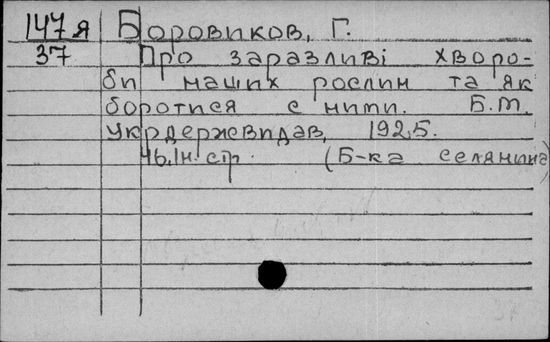 147я Боровиков, Г.
37 Про заразливі хворо-
би наших рослин та як
боротися с ними. Б.м.
Укрдержвидав, 1925.
46, Ін. стр. (Б-ка селянина)